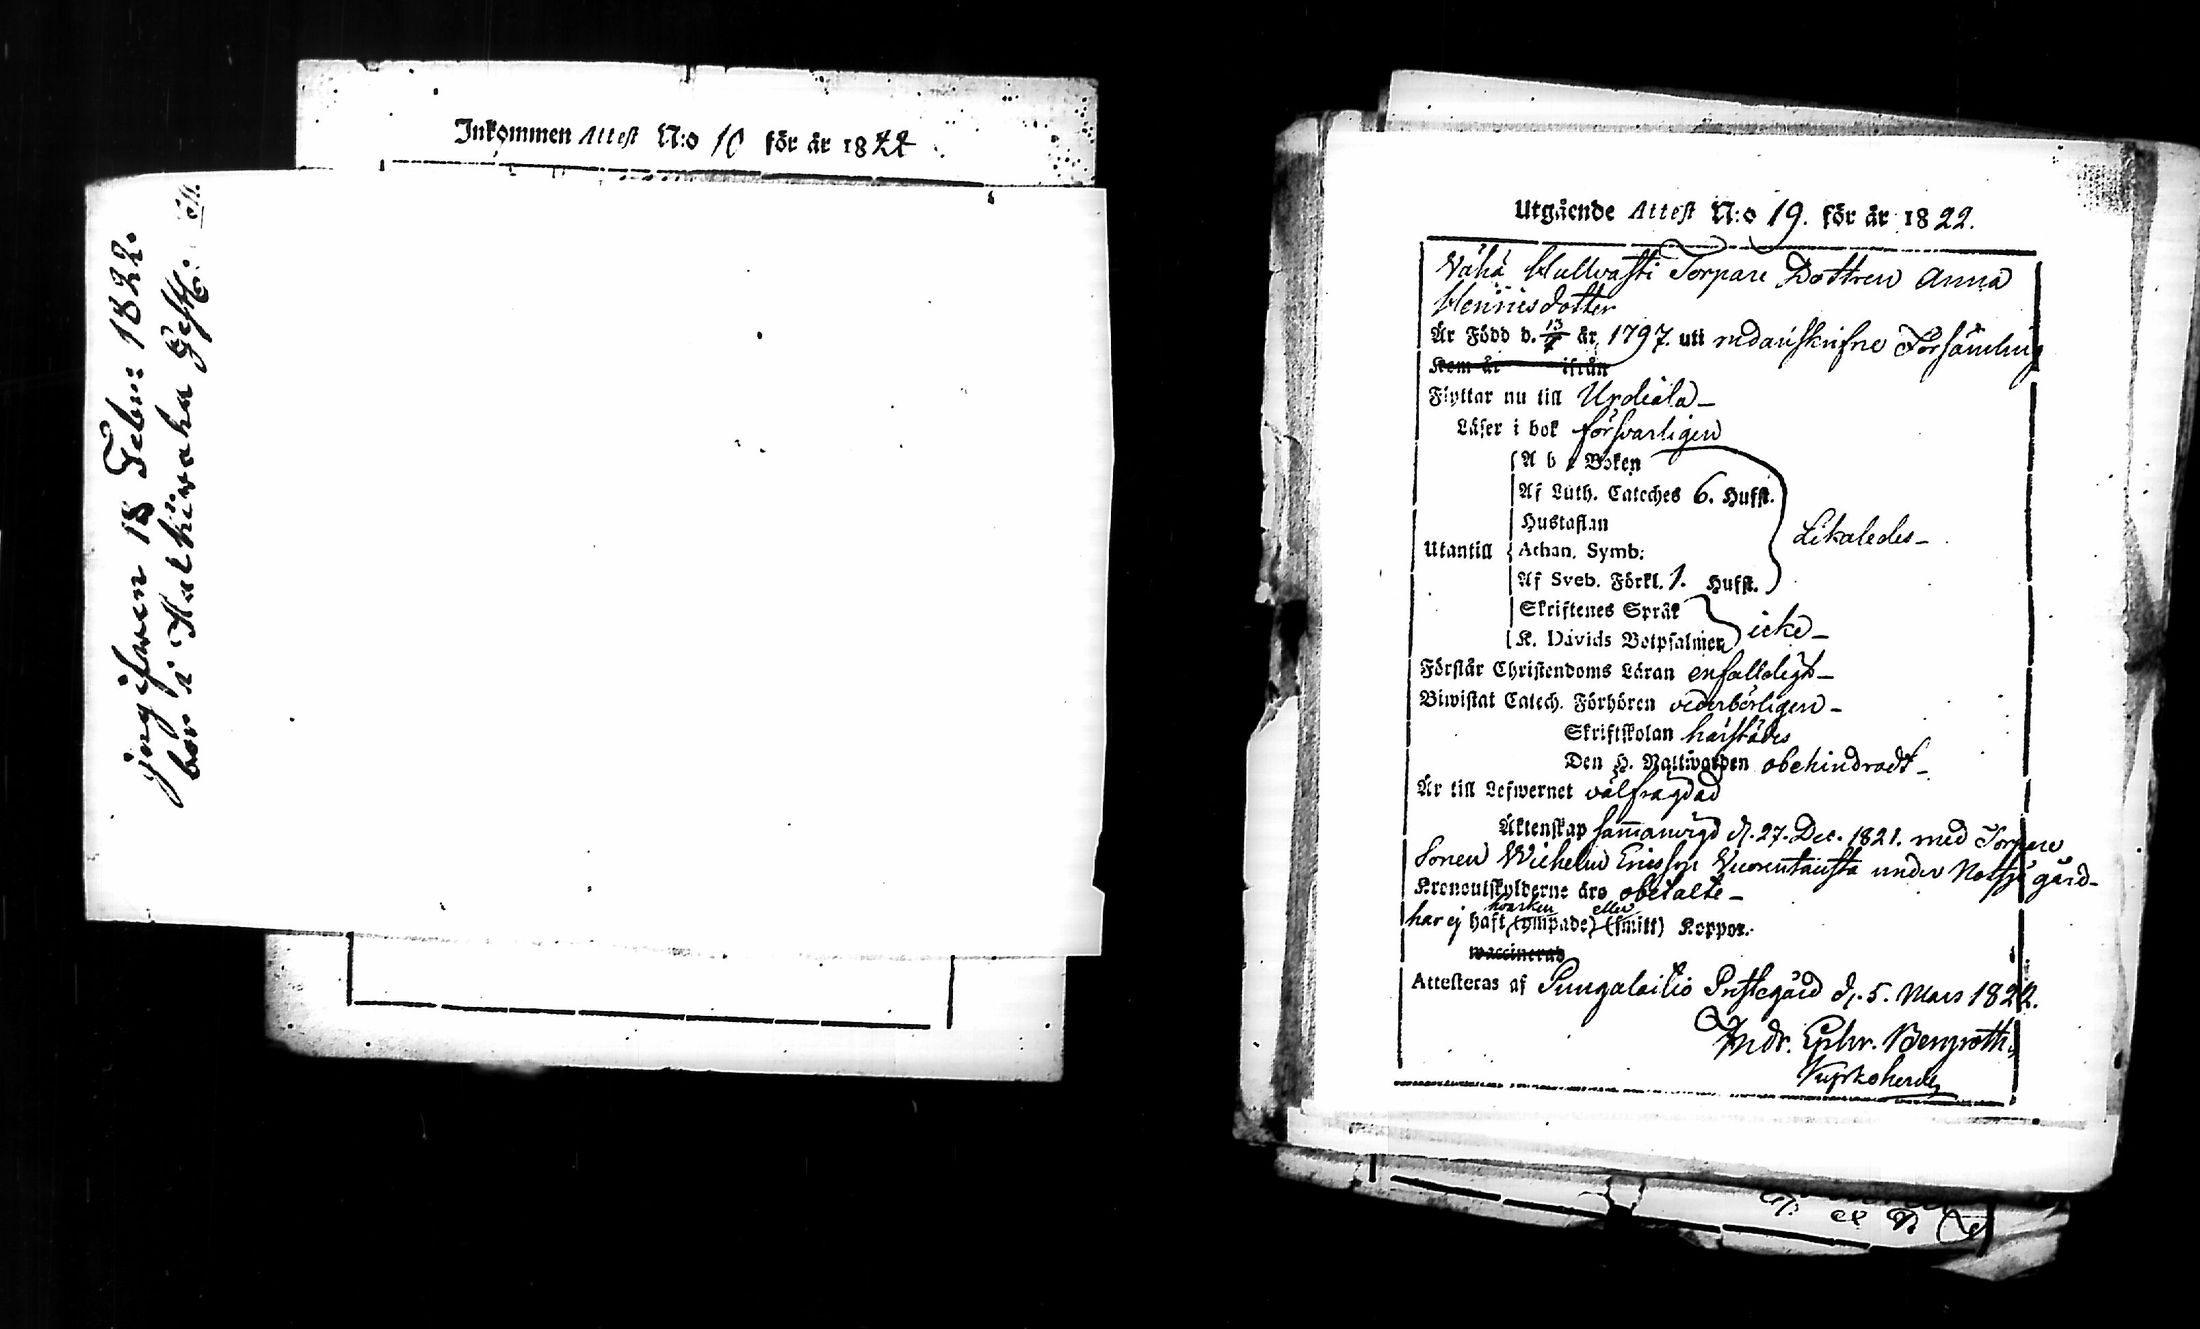 Inkommen Attest N:o 10 för år 1822
ingifven 18 Febru: 1822.
bor i
Utgående Attest N:o 19. för år 1822.
Vähä Hullvasti Torpare Dottren Anna
Henricsdotter
Är Född d. 13/7 år 1797. uti nedanskrifne Församling
Kom år ifrån
Flyttar nu till Urdiala –
Läser i bok försvarligen
A b c Boken
Af Luth. Cateches 6. Hufst.
Hustaflan
Utantill Athan. Symb: Likaledes –
Af Sveb. Förkl. 1. Hufst.
Skriftenes Språk
K. Davids Botpsalmer icke –
Förstår Christendoms Läran enfalldigt –
Biwistat Catech. Förhören vederbörligen –
Skriftskolan härstädes
Den H. Nattwarden obehindradt –
Är till Lefwernet välfrägdad
Äktenskap sammanvigd d. 27. Dec. 1821. med Torpare
Sonen Wilhelm Ericsson Vuorentausta under gård –
Kronoutskylderne äro obetalte –
har ej haft hvarken (ympade) eller (smitt) Koppor.
waccinerad
Attesteras af Pungalaitio Prestegård d. 5. Mars 1822.
Andr. Ephr. Bergroth
Kyrkoherde